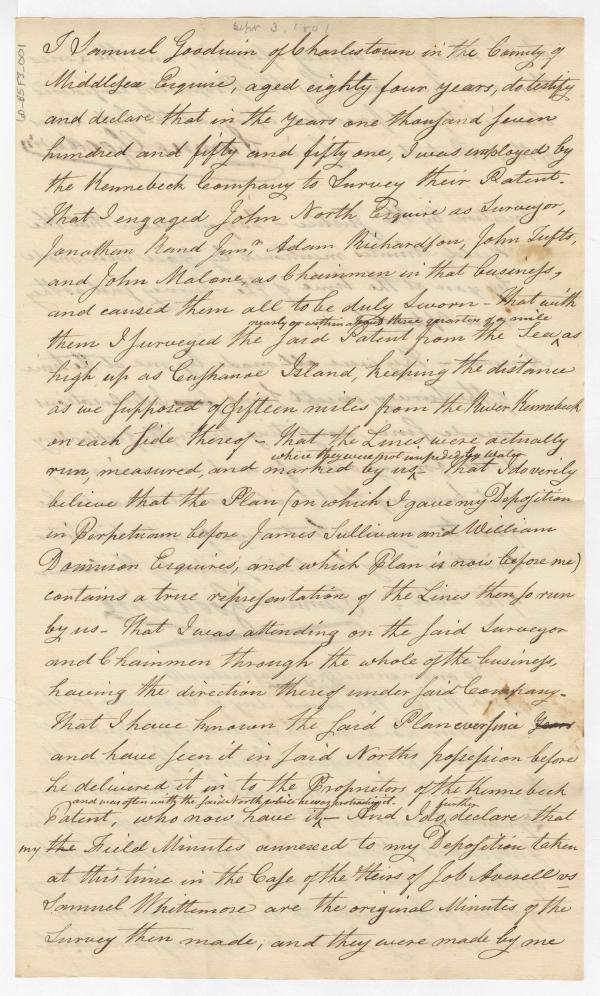 Sepr 3, 1801
W-8573-001
I Samuel Goodwin of Charlestown in the County of
Middlesex Esquire, aged eighty four years, do testify
and declare that in the Years one thousand seven
hundred and fifty and fifty one, I was employed by
the Kennebeck Company to Survey their Patent.
That I engaged John North Esquire as Surveyor,
Jonathan Rand Junr. Adam Richardson, John Tufts,
and John Malone, as Chainmen in that business,
and caused them all to be duly Sworn - That with
nearly or within about three quarters of a mile
them I surveyed the said Patent from the Sea ^ as
high up as Cushanoe Island, keeping the distance
as we supposed of fifteen miles from the River Kennebeck
on each side thereof - That the Lines were actually
where they were not impeded by water
run, measured, and marked by us ^ - That I do verily
believe that the Plan (on which I gave my Deposition
in Perpetuam before James Sullivan and William
Donnison Esquires, and which Plan is now before me)
contains a true representation of the Lines then so run
by us - That I was attending on the said Surveyor
and Chainmen through the whole of the business,
having the direction thereof under said Company -
That I have known the said Plan ever since
and have seen it in said Norths possession before
he delivered it in to the Proprietors of the Kennebeck
and was often with the said North while he was protracting it -
further
Patent, who now have it ^ - And I do ^ declare that
my the Field Minutes annexed to my Deposition taken
at this time in the Case of the Heirs of Job Averell vs
Samuel Whittemore are the original Minutes of the
Survey then made, and they were made by me